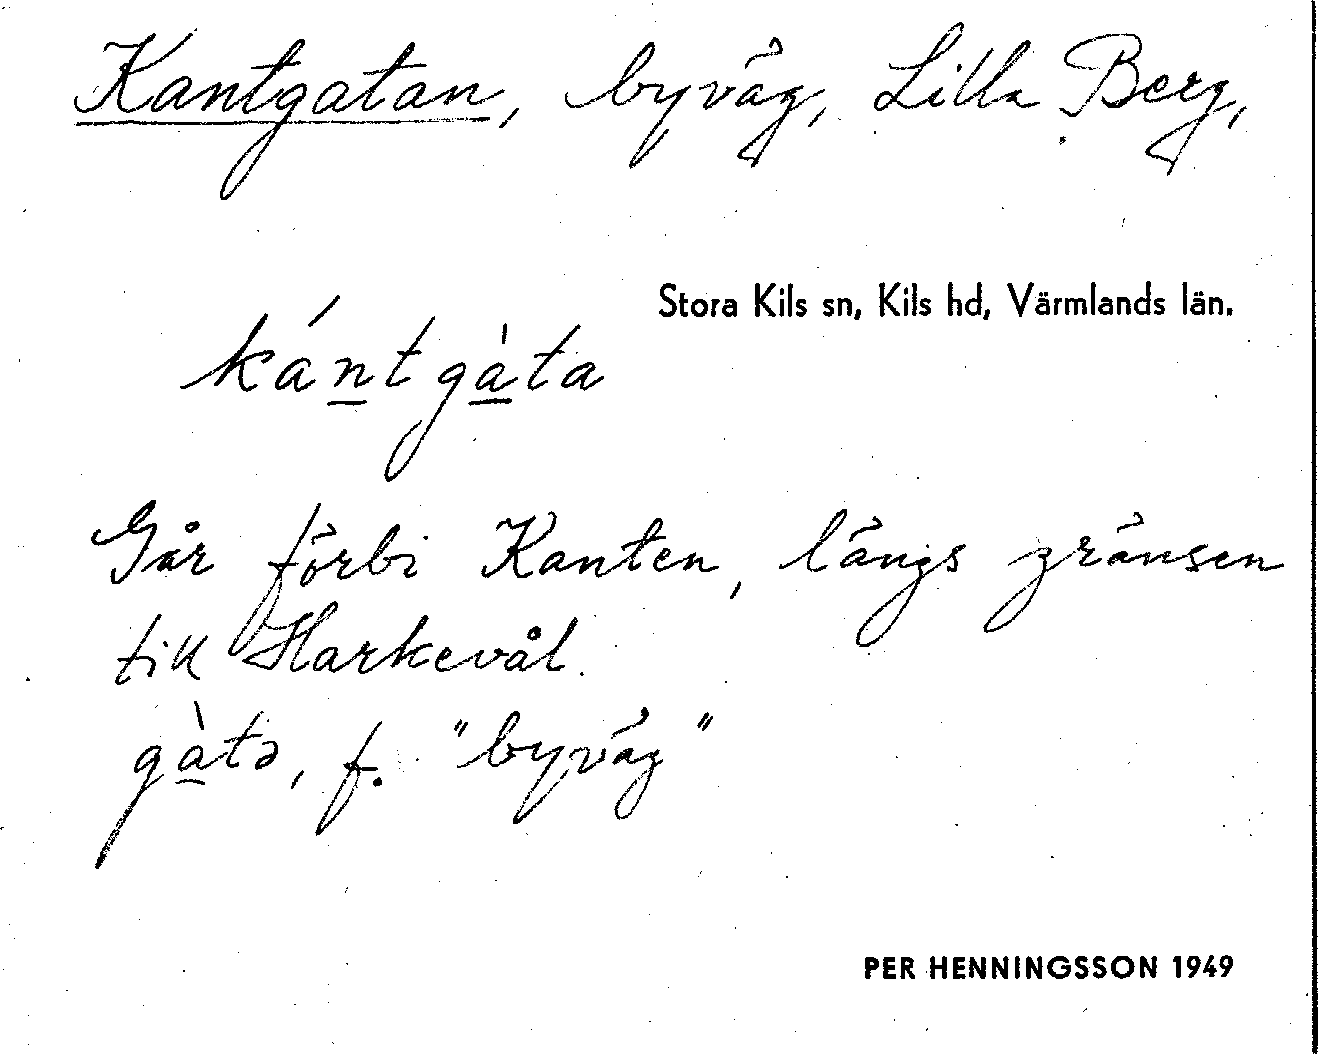 Kantgatan, byväg, Lilla Berg,
Stora Kils sn, Kils hd, Värmlands län.
kántgàta
Går förbi Kanten, längs gränsen
till Harkevål.
gàtə, f. "byväg"
PER HENNINGSSON 1949